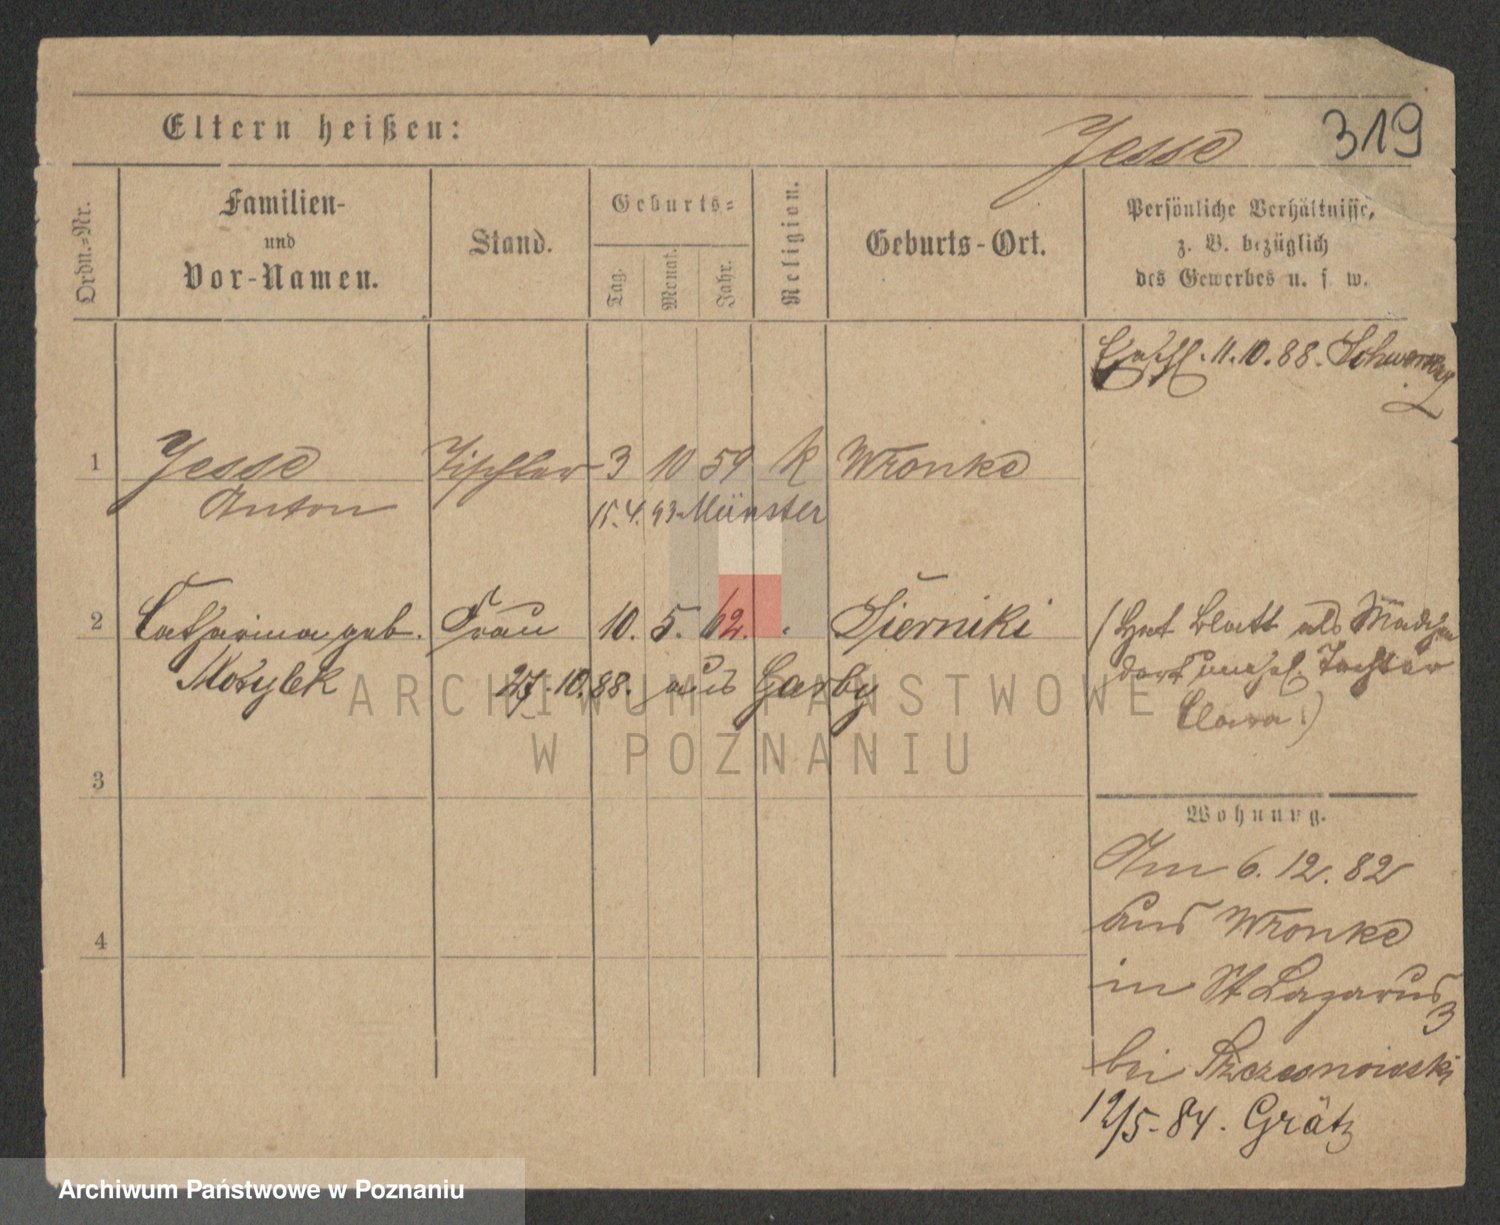 Eltern heißen:
Jesse
319
Ordn.-Nr.
Familien-
und
Vor-Namen.
Stand.
Geburts-
Tag.
Monat.
Jahr.
Religion.
Geburts-Ort.
Persönliche Verhältnisse,
z. B. bezüglich
des Gewerbes u. s. w.
11.10.88.
1 Jesse Tischler 3 10 59 k Wronke
Anton
15.4.93 Münster
2 Catharina geb. Frau 10. 5. 62. Dierniki
27.10.88. aus Garby
(Hat Blatt als Mädchen
Tochter
Clara!)
3
4
Wohnung.
Am 6.12.82
aus Wronke
in St Lazarus
3
bei
12/5.84. Grätz
ARCHIWUM PAŃSTWOWE
W POZNANIU
Archiwum Państwowe w Poznaniu